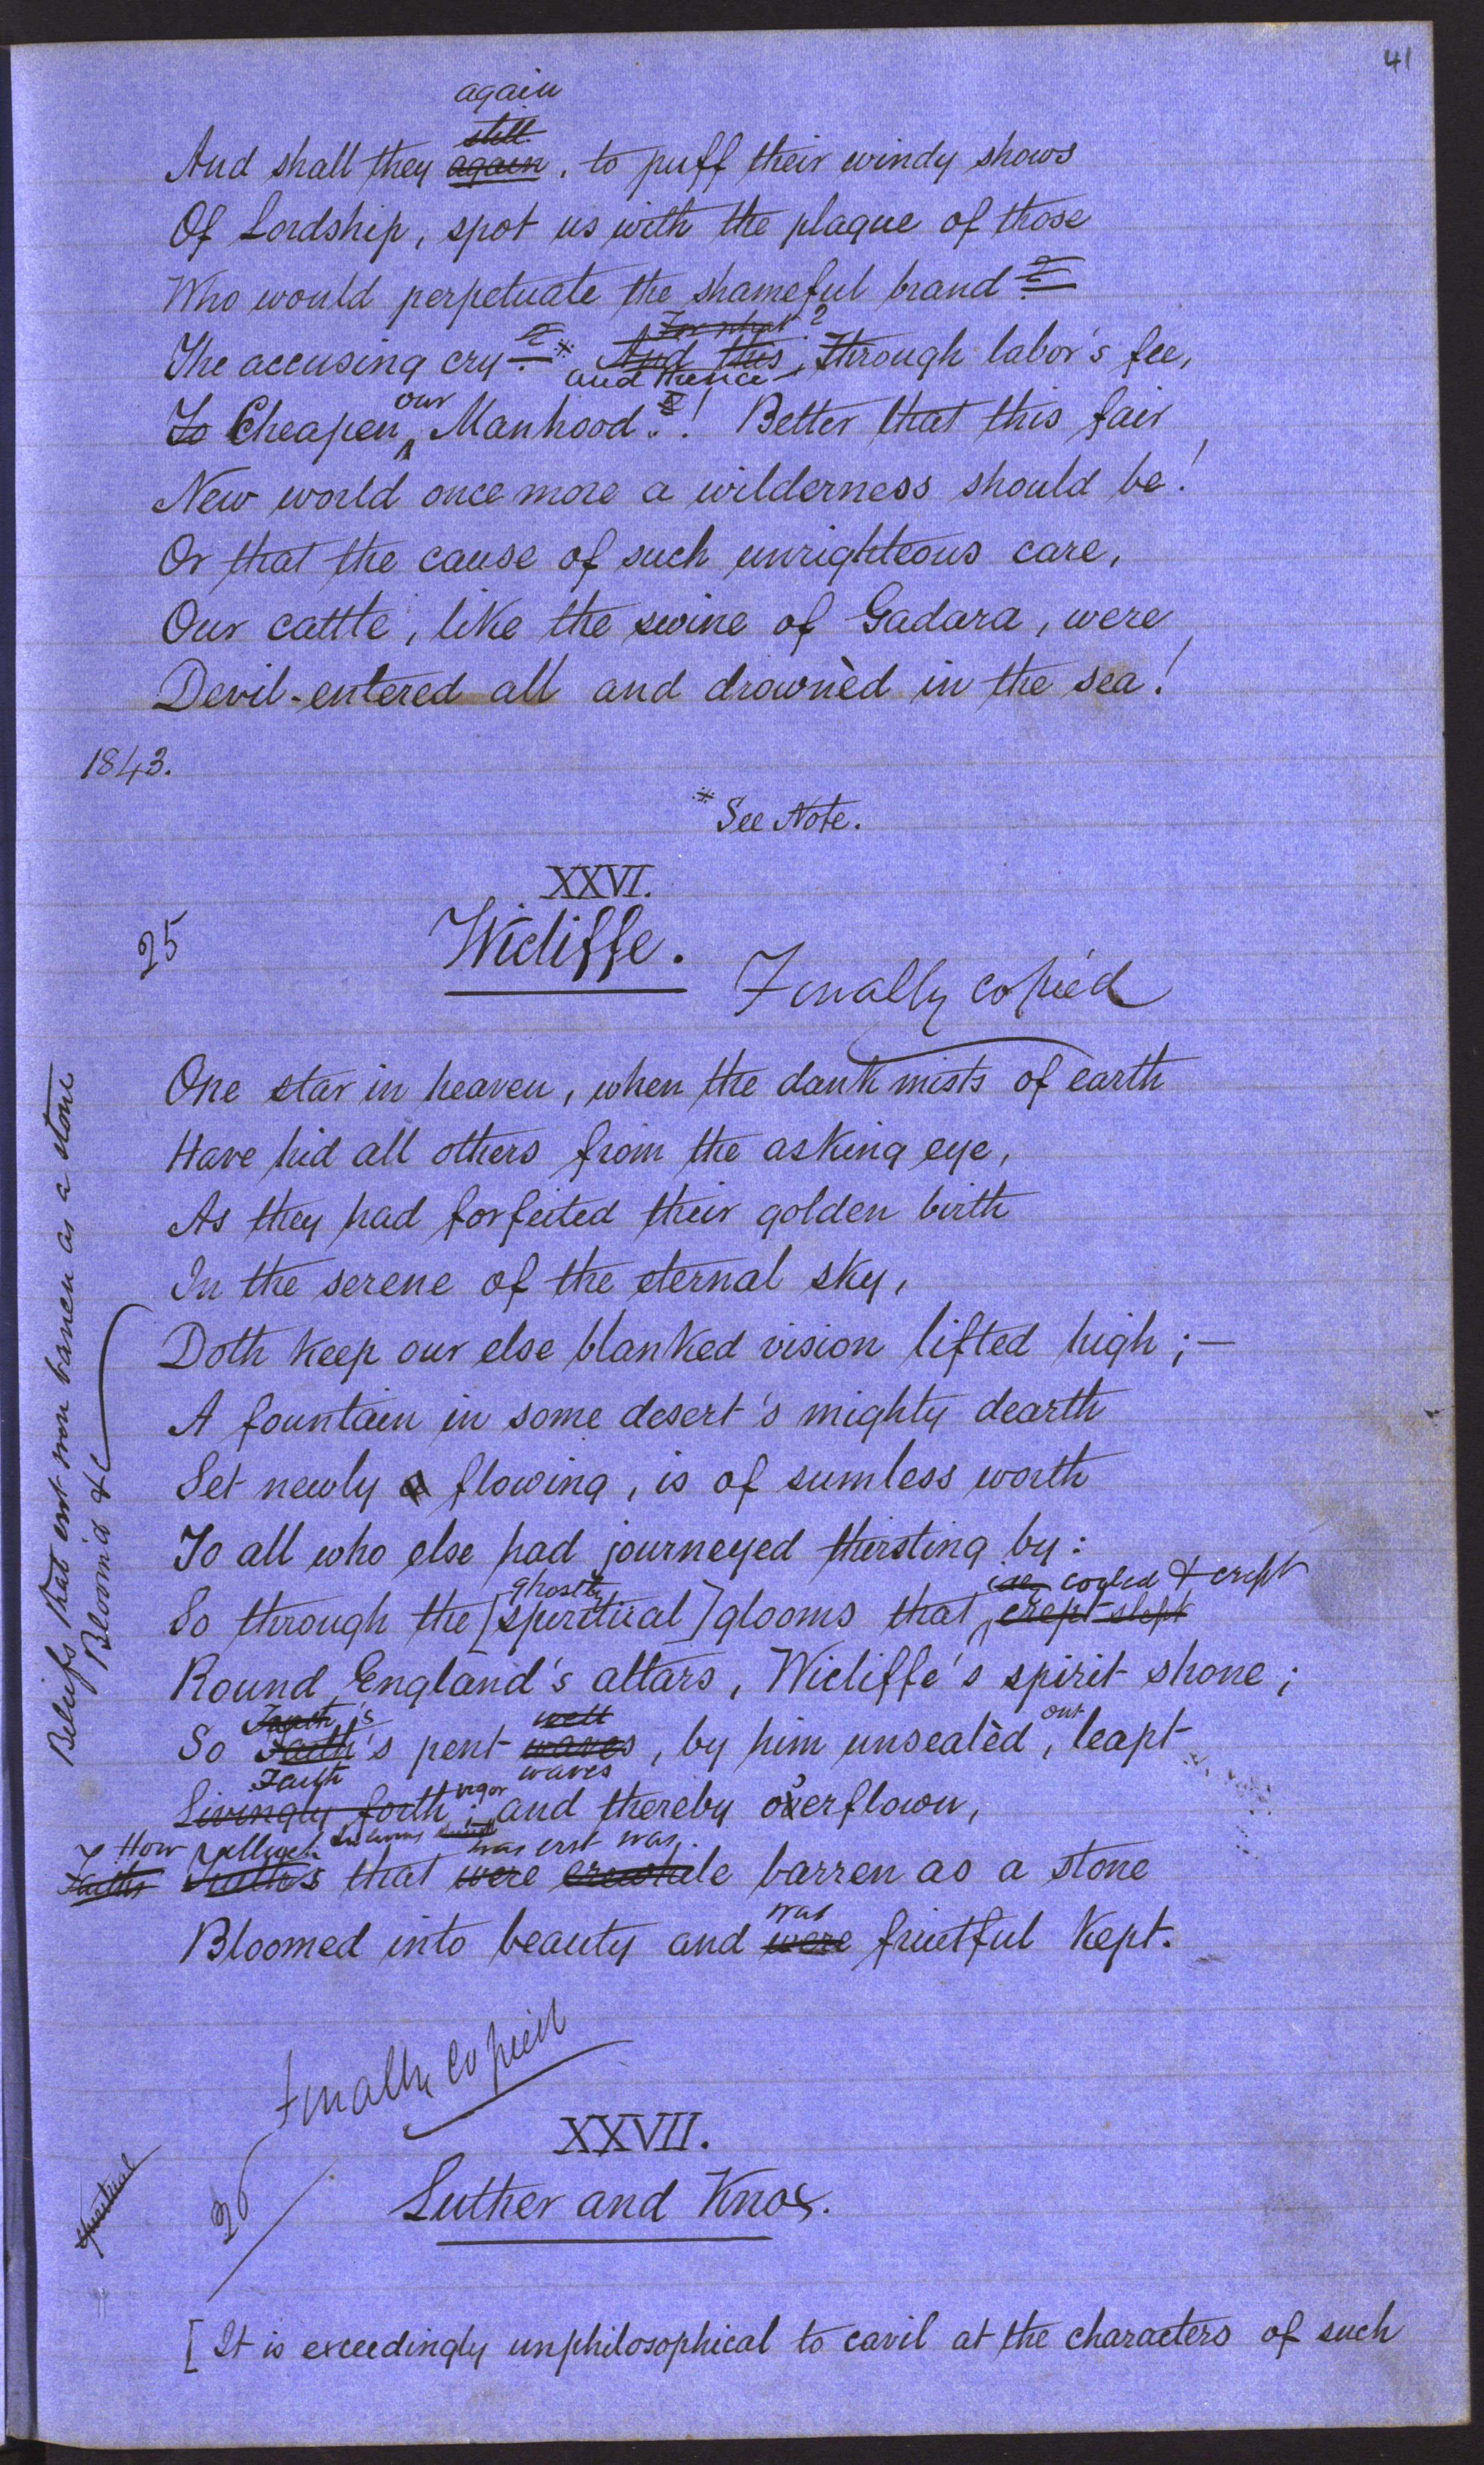 41
again
still
And shall they again, to puff their windy shows
Of Lordship, spot us with the plague of those
Who would perpetuate the shameful brand?
For what?
The accusing cry?* And this, through labor's fee,
and thence
our
To Cheapen Manhood! Better that this fair
New world once more a wilderness should be!
Or that the cause of such unrighteous care,
Our cattle, like the swine of Gadara, were
Devil-entered all and drownèd in the sea!
1843.
* See Note.
XXVI.
25
Wicliffe.
Finally copied
One star in heaven, when the dank mists of earth
Have hid all others from the asking eye,
As they had forfeited their golden birth
In the serene of the eternal sky,
Doth keep our else blanked vision lifted high;—
A fountain in some desert's mighty dearth
Set newly a flowing, is of sumless worth
To all who else had journeyed thirsting by:
ghostly
cooled & crept
So through the [spiritual] glooms that crept slept
Round England's altars, Wicliffe's spirit shone;
Truth's well out
So Faith's pent waves, by him unsealèd, leapt
Faith waves
vigor
Livingly forth; and thereby o'erflown,
How was erst was
Faiths Truths that were erewhile barren as a stone
was
Bloomed into beauty and were fruitful kept.
Beliefs that erst were barren as a stone
Bloom'd &c
Finally copied
XXVII.
26
Luther and Knox.
spiritual
[It is exceedingly unphilosophical to cavil at the characters of such